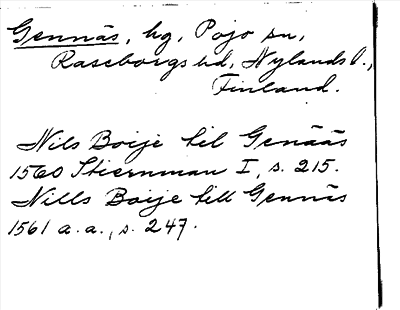 Gennäs, hg, Pojo sn,
Raseborgs hd, Nylands l.,
Finland.
Nils Boije til Genääs
1560 Stiernman I, s. 215.
Nills Boije till Gennäs
1561 a. a., s. 247.